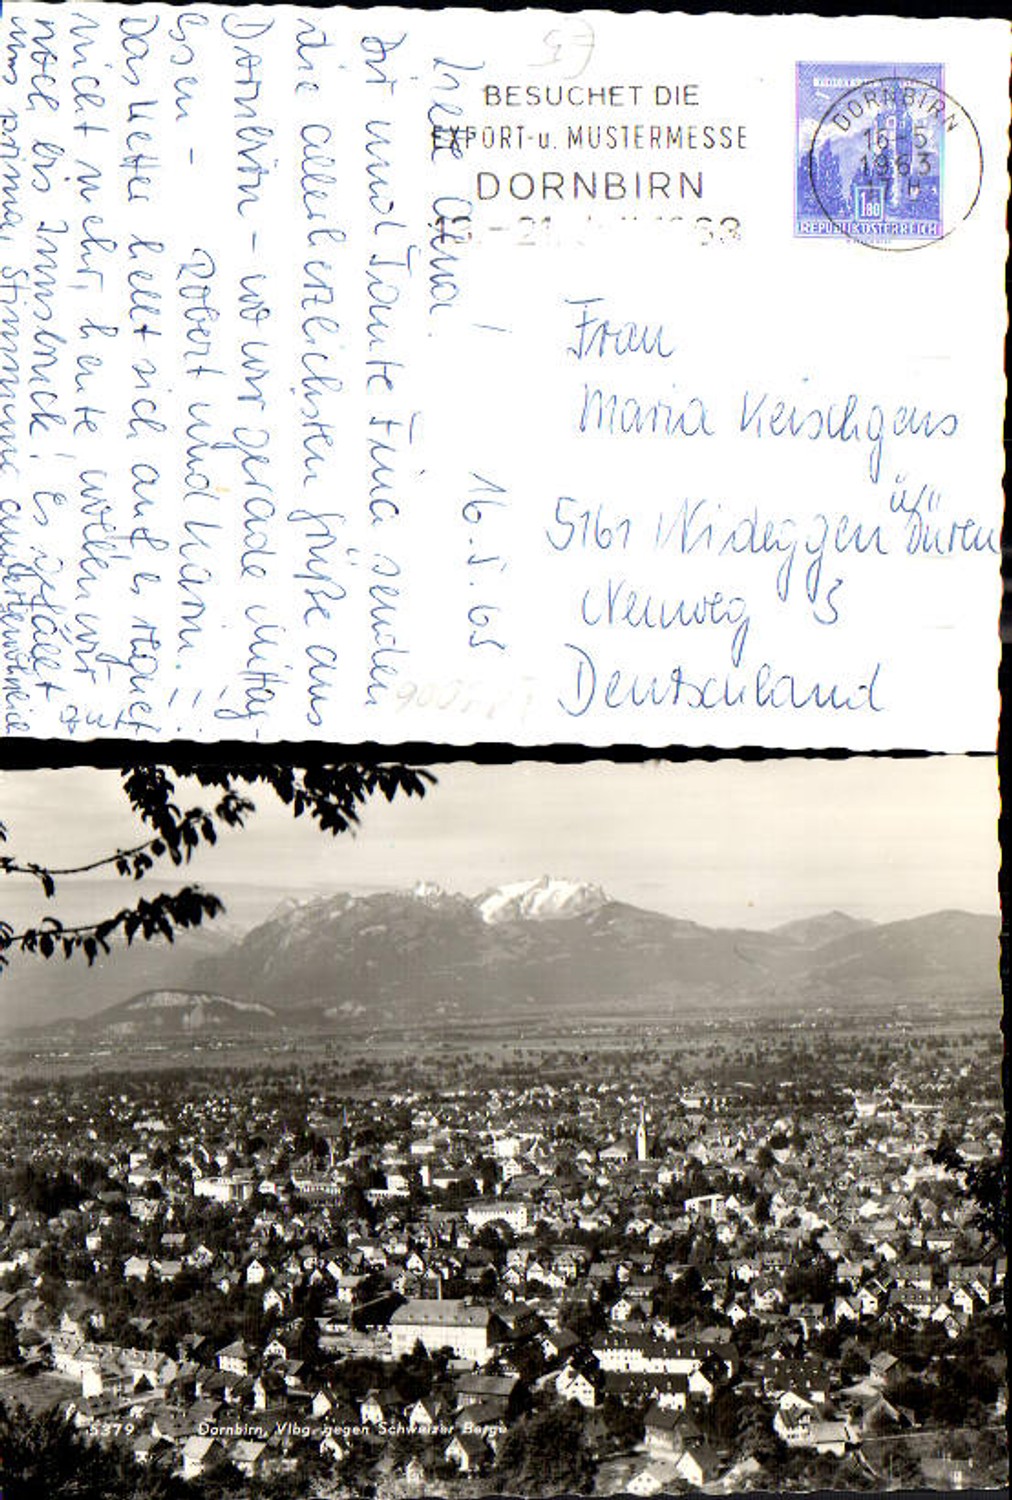 BESUCHET DIE
EXPORT-u. MUSTERMESSE
DORNBIRN
DORNBIRN
16-5
1963
17 H
1.80
REPUBLIK ÖSTERREICH
16.5.63
Liebe Oma!
Dir und Tante Fina senden
die allerherzlichsten Grüße aus
Dornbirn - wo wir gerade Mittag-
essen - Robert und Karin.!!!
Das Wetter hellt sich auf, es regnet
nicht mehr, heute wollen wir
noch bis Innsbruck! Es gefällt
uns prima, Stimmung
Frau
Maria Keischgens
5161 Nideggen ü/ Düren
Neuweg 3
Deutschland
5379 Dornbirn, Vlbg. gegen Schweizer Berge